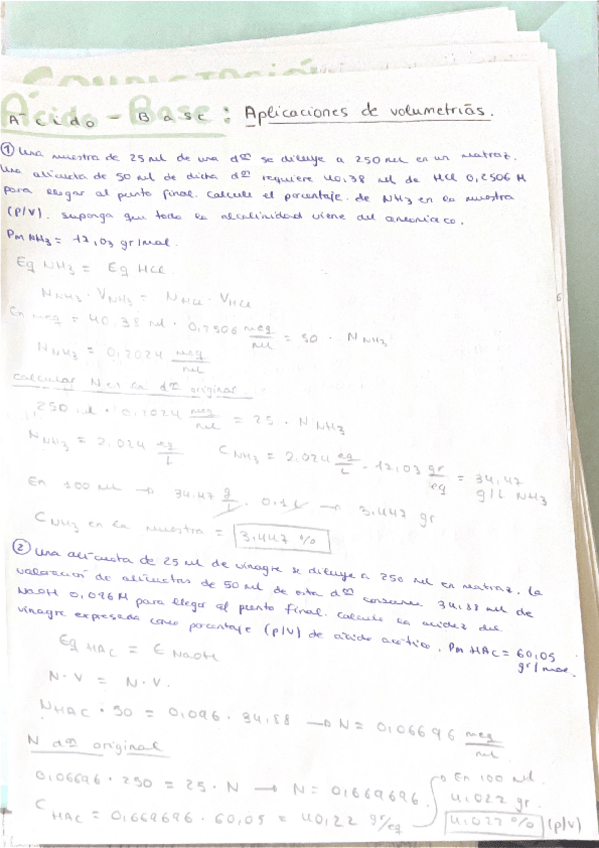 Ácido-Base: Aplicaciones de volumetrías.
① Una muestra de 25 ml de una dón se diluye a 250 ml en un matraz.
Una alícuota de 50 ml de dicha dón requiere 40,38 ml de HCl 0,2506 M
para llegar al punto final. Calcule el porcentaje de NH3 en la muestra
(p/v). Suponga que toda la alcalinidad viene del amoniaco.
Pm NH3 = 17,03 gr/mol.
Eq NH3 = Eq HCl
N NH3 · V NH3 = N HCl · V HCl
En meq = 40,38 ml · 0,2506 meq/ml = 50 · N NH3
N NH3 = 0,2024 meq/ml
Calcular N en la dón original
250 ml · 0,2024 meq/ml = 25 · N NH3
N NH3 = 2,024 eq/L C NH3 = 2,024 eq/L · 17,03 gr/eq = 34,47 g/L NH3
En 100 ml → 34,47 g/L · 0,1 L → 3,447 gr
C NH3 en la muestra = 3,447 %
② Una alícuota de 25 ml de vinagre se diluye a 250 ml en matraz. La
valoración de alícuotas de 50 ml de esta dón consume 34,88 ml de
NaOH 0,096 M para llegar al punto final. Calcule la acidez del
vinagre expresada como porcentaje (p/v) de ácido acético. Pm HAc = 60,05 gr/mol.
Eq HAC = E NaOH
N·V = N·V.
N HAC · 50 = 0,096 · 34,88 → N = 0,06696 meq/ml
N dón original
0,06696 · 250 = 25 · N → N = 0,669696. En 100 ml.
C HAC = 0,669696 · 60,05 = 40,22 g/eq 4,022 gr.
4,022 % (p/v)